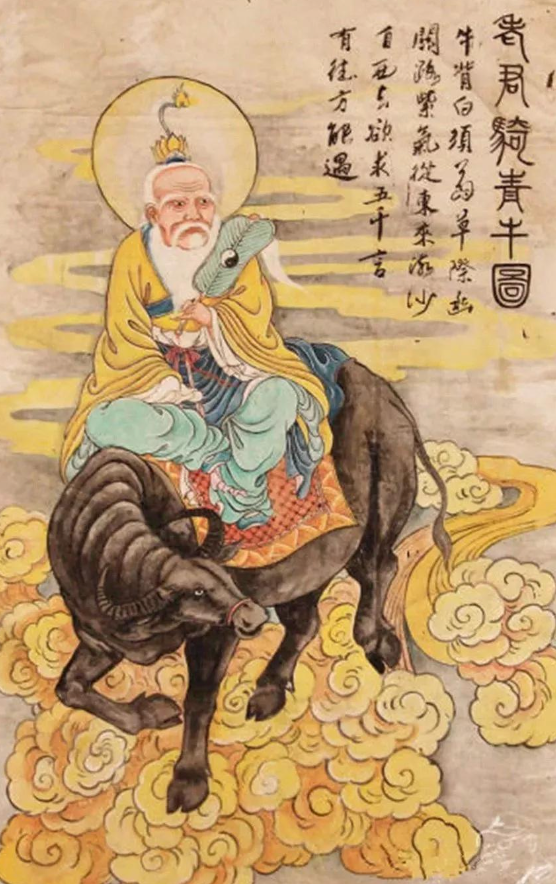 老君騎青牛圖
牛背白須翁草際幽
關路紫氣從東來流沙
自西去欲求五千言
有德方能遇